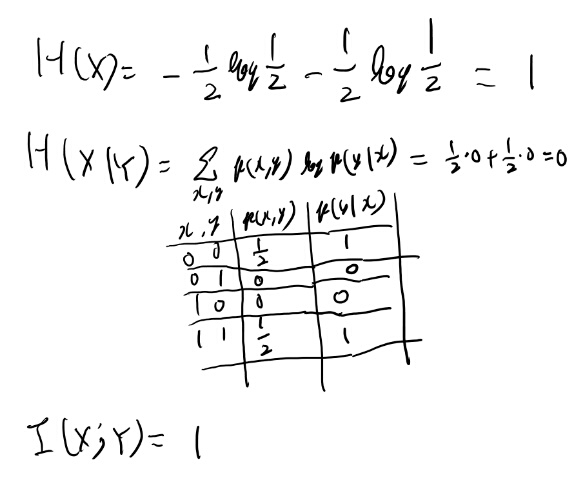 H(X) = - 1/2 log 1/2 - 1/2 log 1/2 = 1
H(X|Y) = Σ_{x,y} p(x,y) log p(y|x) = 1/2·0 + 1/2·0 = 0
x, y | p(x,y) | p(y|x)
0 0 | 1/2 | 1
0 1 | 0 | 0
1 0 | 0 | 0
1 1 | 1/2 | 1
I(X;Y) = 1